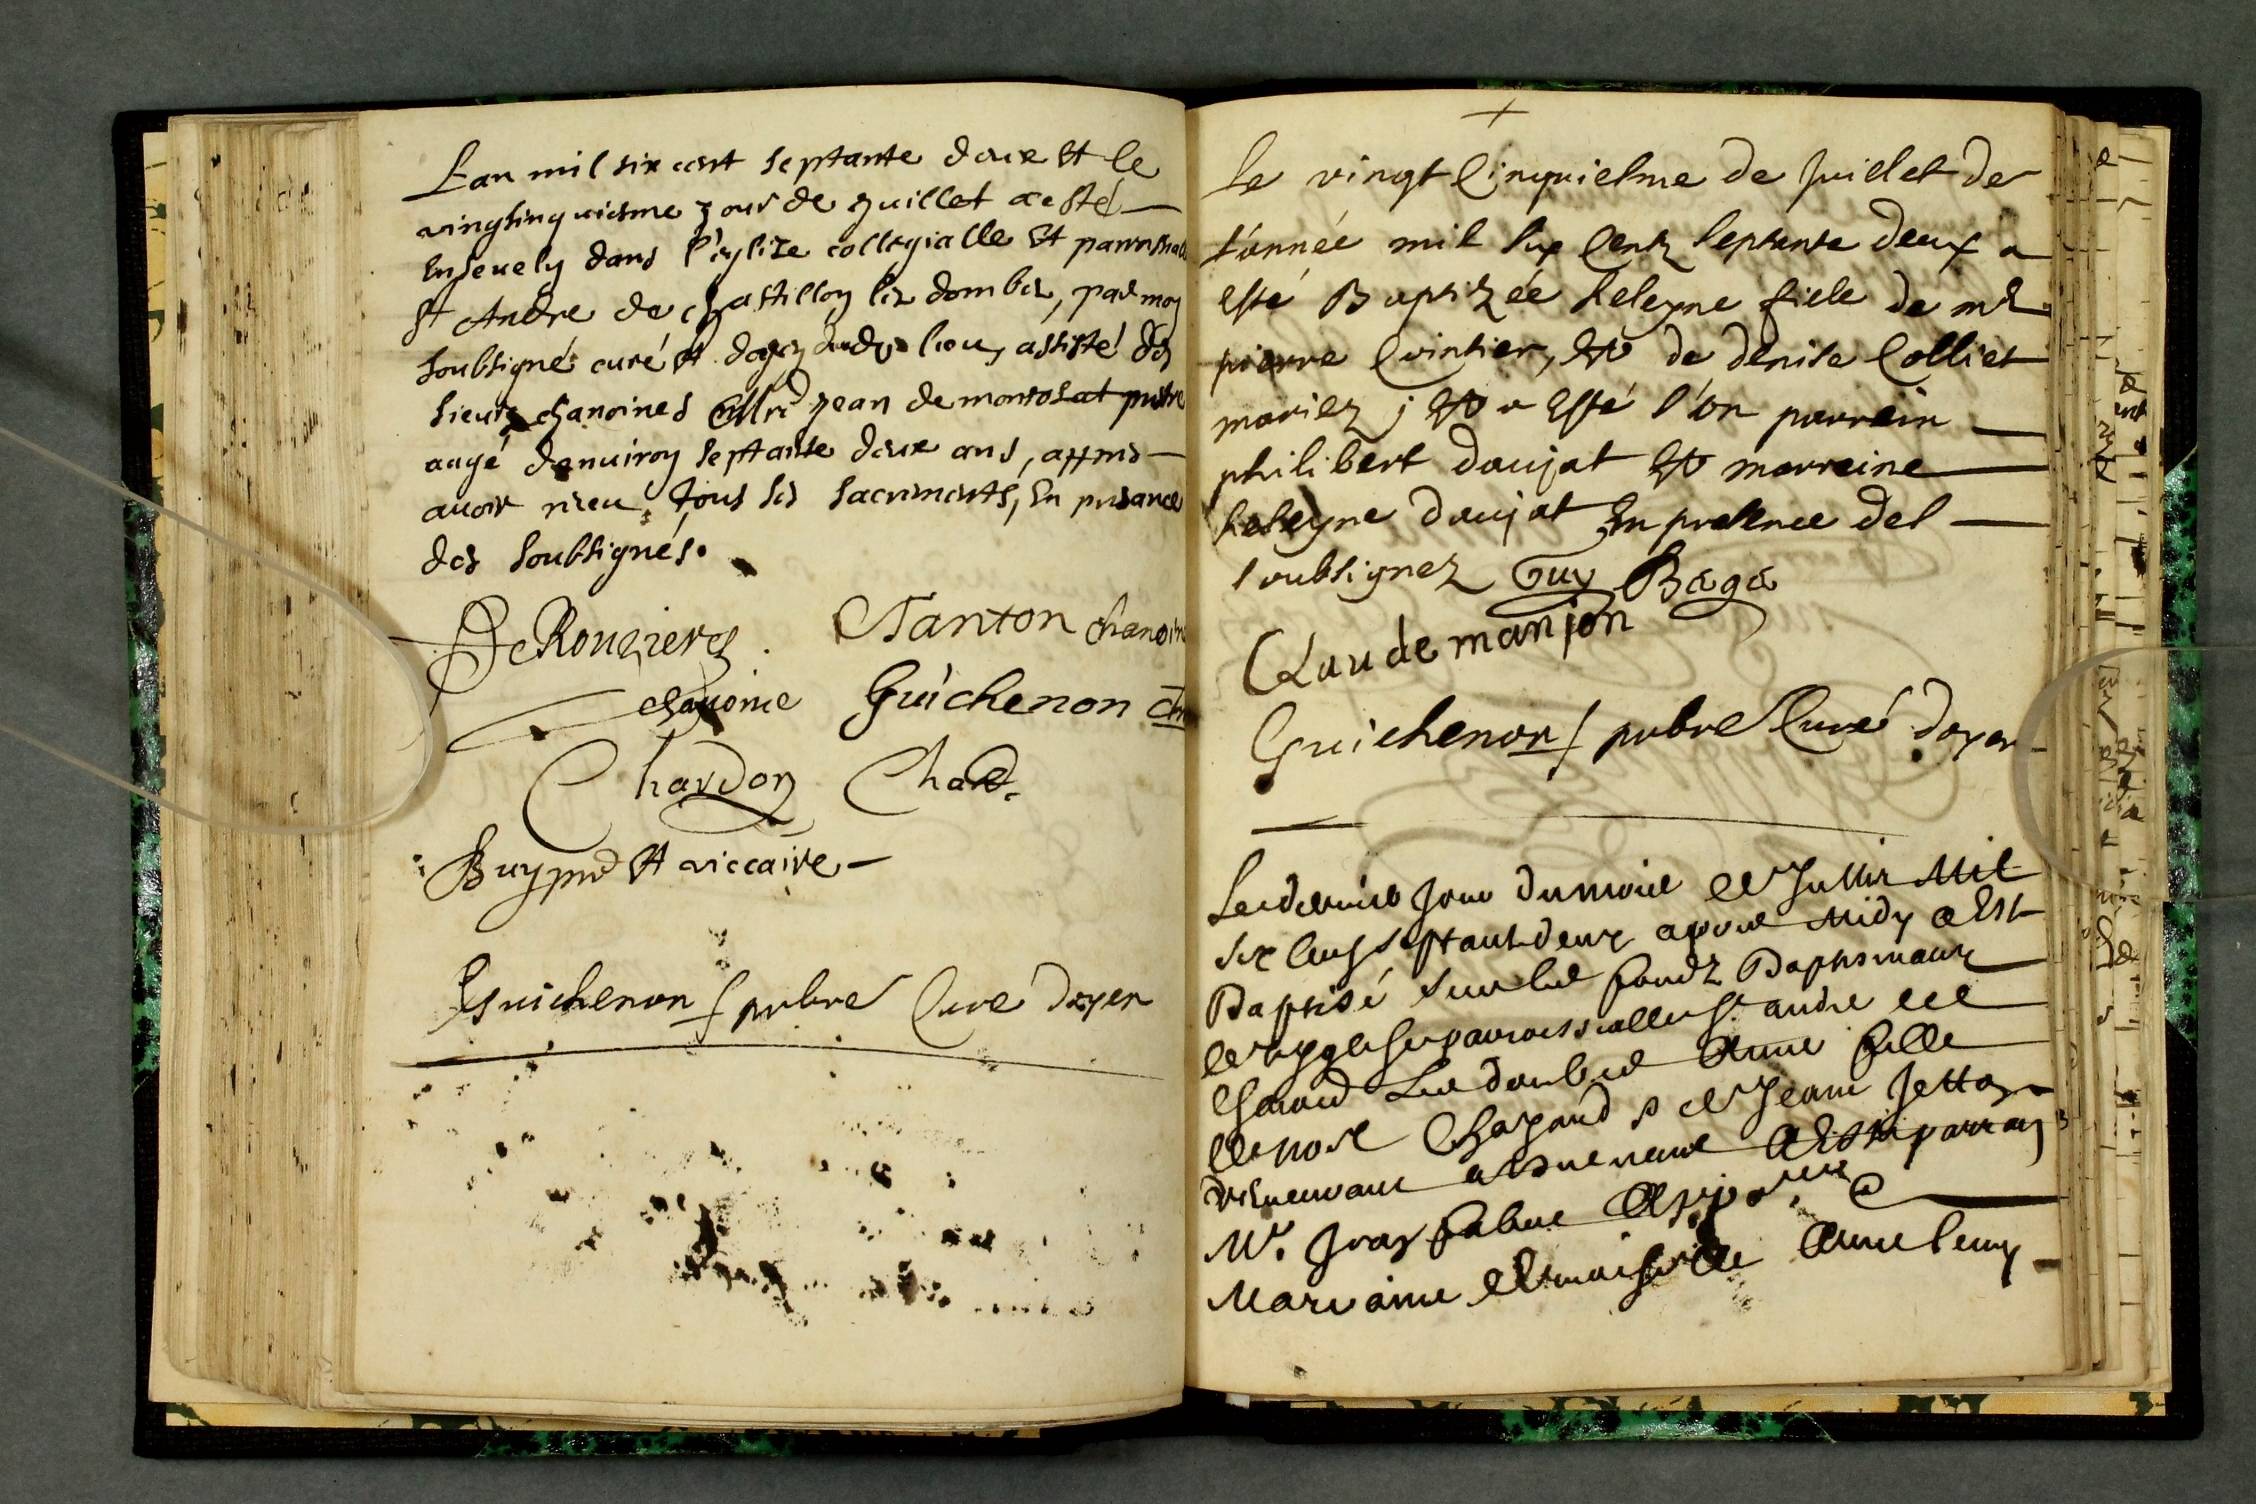 Lan mil six cent septante deux et le
vingtinquiesme jour de juillet a esté
Ensevely dans l'eglize collegialle et parrochialle
St Andre de chastillon lez dombes, par moy
soubsigné curé et doyen dudit lieu, assisté des
sieurs chanoines Mre jean de montosat prbtre
augé denuiron septante deux ans, appres
avoir receu tous les sacrements, En presance
des soubsignés.
DeRouzieres Tanton chanoine
chanoine Guichenon ch
Chardon Chad.
Buy prb et viccaire
Guichenon prbre Curé doyen
Le vingt Cinquiesme de Juillet de
l'année mil six Centz septante deux a
esté Baptizée heleyne fiele de mE
pierre Cuintier, et de denise Colliet
mariez ; et a Esté s'on parrein
philibert daujat et marreine
heleyne daujat En presence des
soubsignez Guy Baga
Claude manjon
Guichenon prbre Curé doyen
Le dernier Jour du mois de Juillet Mil
six Cens septante deux apres Midy a Est
Baptisé sur les fondz Baptismaux
de legglise parroissialle St andre de
Chat les dombes Anne fille
de Chapand et de Jeane
a esté parrain
Mr.
Marraine damoiselle Anne